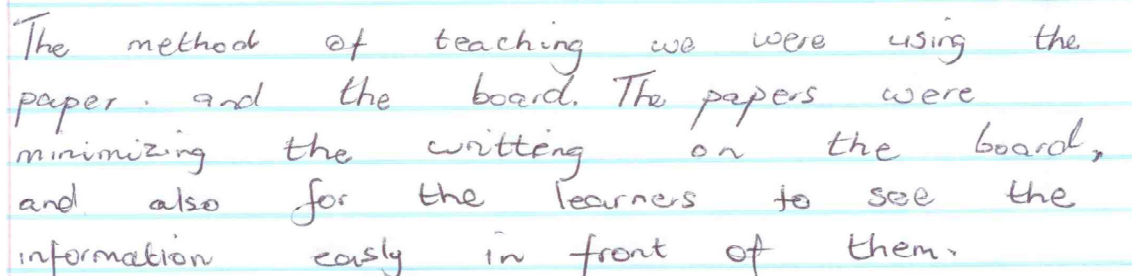 The method of teaching we were using the
paper. and the board. The papers were
minimizing the writting on the board,
and also for the learners to see the
information easly in front of them.